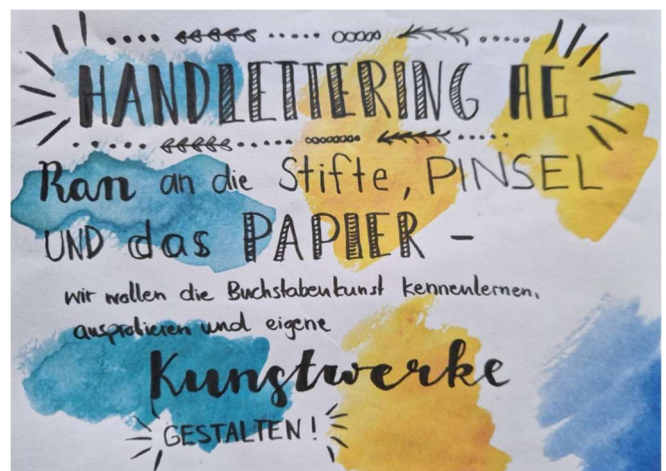 HANDLETTERING AG
Ran an die Stifte, PINSEL
UND das PAPIER -
wir wollen die Buchstabenkunst kennenlernen,
ausprobieren und eigene
Kunstwerke
GESTALTEN!